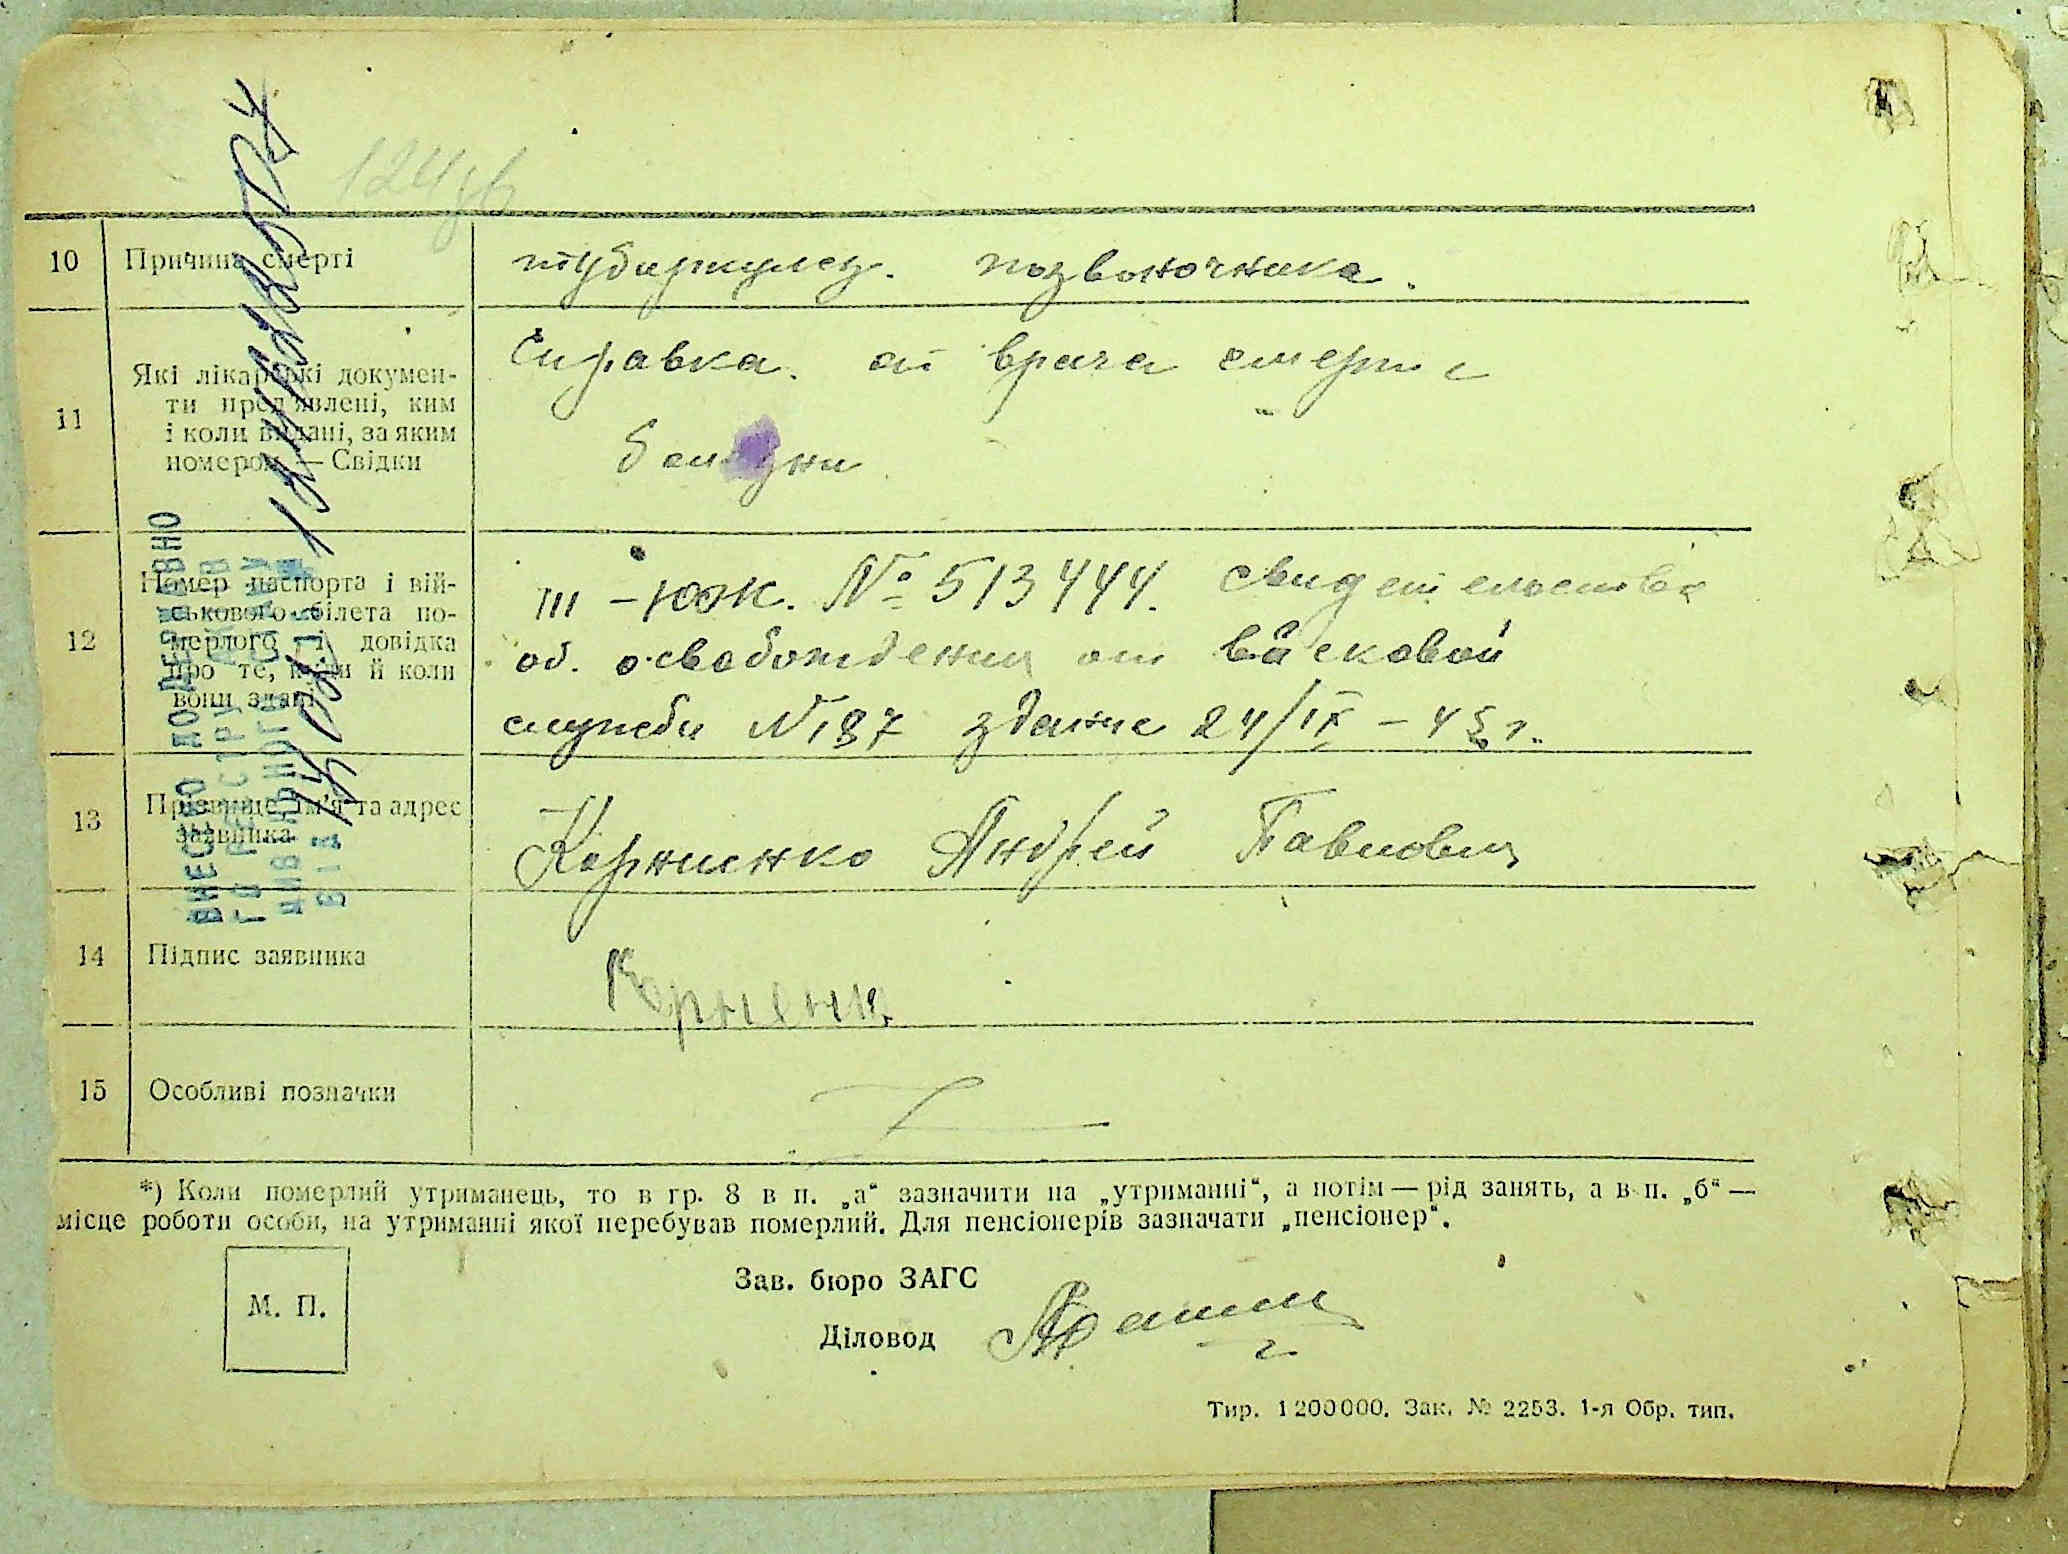 124 зв
10 Причина смерті
тубиркулез. позвоночника.
11 Які лікарські докумен-
ти пред'явлені, ким
і коли видані, за яким
номером — Свідки
Справка. от врача смерти
12 Номер паспорта і вій-
ськового білета по-
мерлого і довідка
про те, куди й коли
вони здані
III – ЮЖ. № 513444. свидетельства
об. освобождении от войсковой
службы N 187 здание 24/IX – 45 г.
13 Прізвище, ім'я та адрес
заявника
Корниенко Андрей Павлович
14 Підпис заявника
15 Особливі позначки
ВНЕСЕНО ДО ДЕРЖАВНО
ГО РЕЄСТРУ АКТІВ
ЦИВІЛЬНОГО СТАНУ
ВІД
*) Коли померлий утриманець, то в гр. 8 в п. „а“ зазначити на „утриманні“, а потім — рід занять, а в п. „б“ —
місце роботи особи, на утриманні якої перебував померлий. Для пенсіонерів зазначати „пенсіонер“.
М. П.
Зав. бюро ЗАГС
Діловод
Тир. 1200000. Зак. № 2253. 1-я Обр. тип.